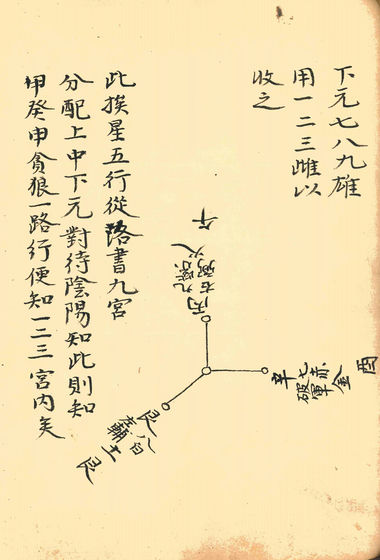 下元七八九雄
用一二三雌以
收之
午
丙
九紫
右弼
火
酉
辛
七赤
破軍
金
艮
八白
左輔
土
艮
此挨星五行從洛書九宮
分配上中下元對待陰陽知此則知
甲癸申貪狼一路行便知一二三宮內矣